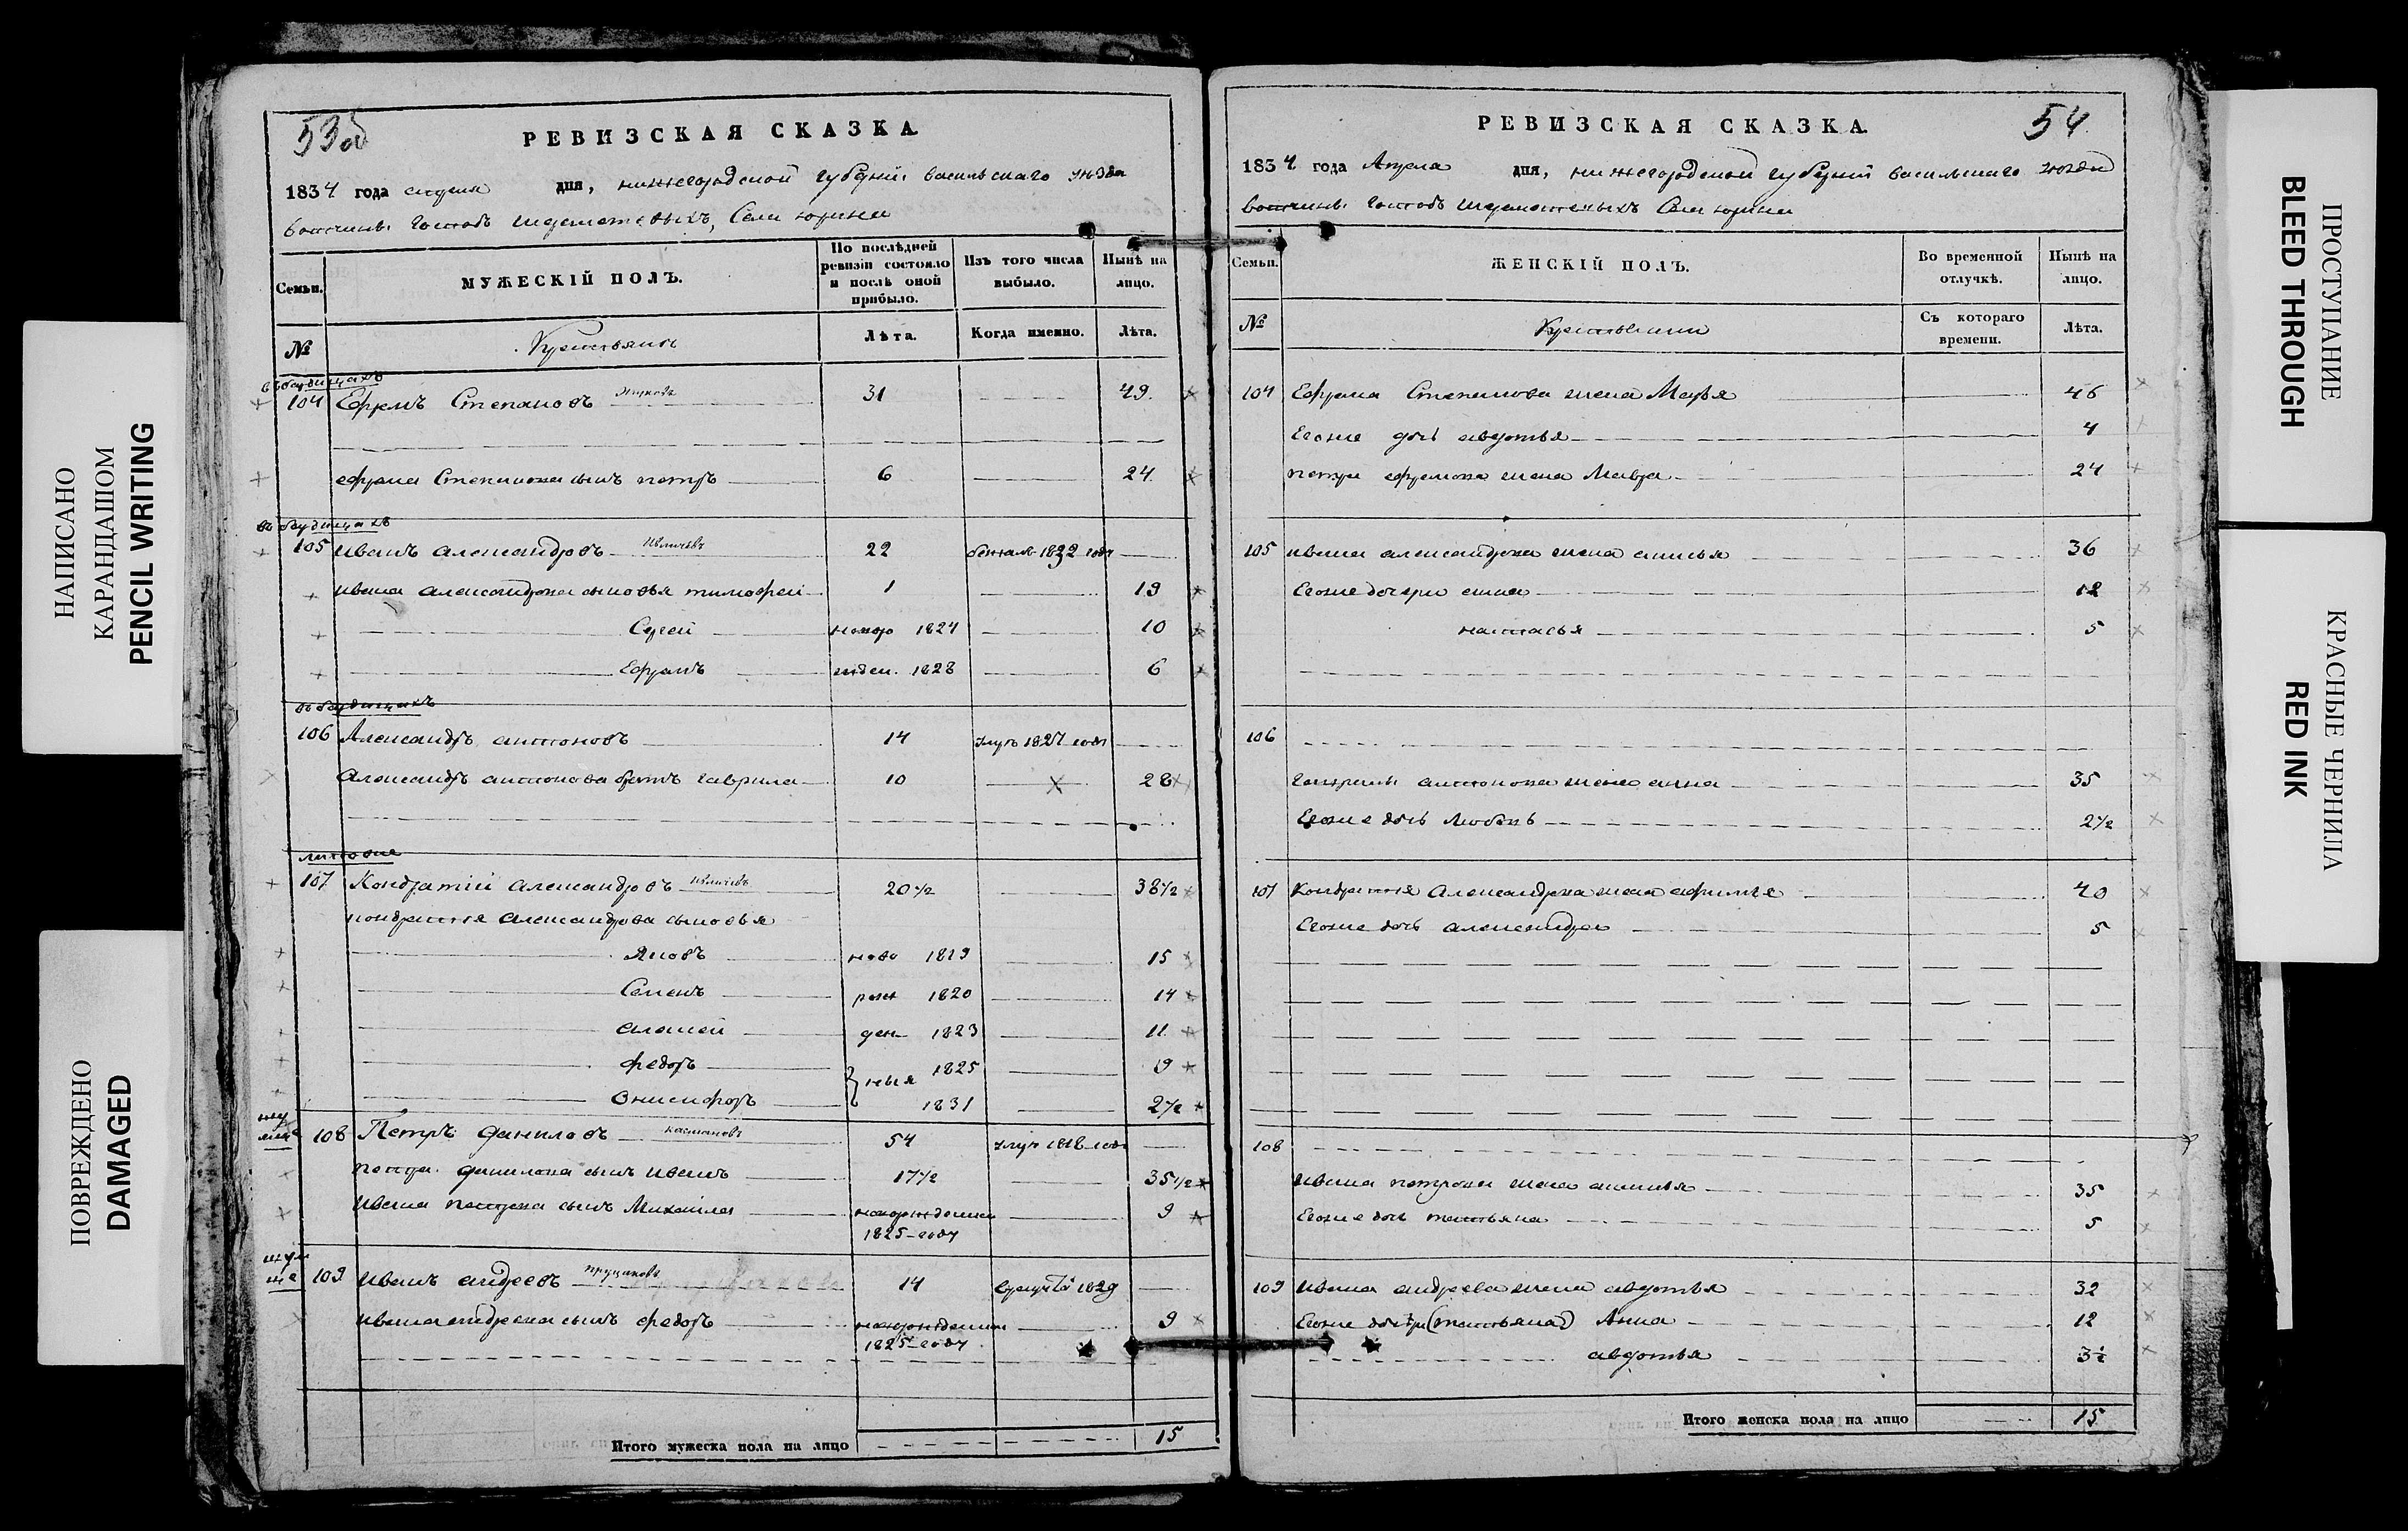 НАПИСАНО
КАРАНДАШОМ
PENCIL WRITING
ПОВРЕЖДЕНО
DAMAGED
53об
РЕВИЗСКАЯ СКАЗКА
1834 года апреля дня, нижегородской губернии васильскаго уѣзда
вотчины господъ шереметевыхъ, Села юрина
Семьи.
МУЖЕСКІЙ ПОЛЪ.
По послѣдней ревизіи состояло и послѣ оной прибыло.
Изъ того числа выбыло.
Нынѣ на лицо.
№
Крестьянъ
Лѣта.
Когда именно.
Лѣта.
104 Ефремъ Степановъ 31 49
ефрема Степанова сынъ петръ 6 24
105 иванъ александровъ 22 1832 году
ивана александрова сыновья тимофей 1 19
Сергей новор 1824 10
Ефремъ жден. 1828 6
106 Александръ антоновъ 14 умре 1827 году
александръ антонова братъ гаврила 10 28
107 Кондратій александровъ 20 1/2 38 1/2
кондратья александрова сыновья
Яковъ ново 1819 15
Семенъ рож 1820 14
алексей ден 1823 11
федоръ ныя 1825 9
Онисифоръ 1831 2 1/2
108 Петръ даниловъ 54 умре 1818 году
петра данилова сынъ иванъ 17 1/2 35 1/2
ивана петрова сынъ Михайла новорожденны 9
1825 году
109 иванъ андреевъ 14 1829
ивана андреева сынъ федоръ новорожденны 9
1825 году
Итого мужеска пола на лицо 15
54.
РЕВИЗСКАЯ СКАЗКА.
1834 года Апреля дня, нижегородской губерніи васильскаго уезда
вотчины господъ шереметевыхъ Села юрина
Семьи.
ЖЕНСКІЙ ПОЛЪ.
Во временной отлучкѣ.
Нынѣ на лицо.
№
Съ котораго времени.
Лѣта.
104 Ефрема Степанова жена Марья 46
Егоже дочь авдотья 4
петра ефремова жена Мавра 24
105 ивана александрова жена 36
Егоже дочери анна 12
настасья 5
106
гаврилы антонова жена анна 35
Егоже дочь Любовь 2 1/2
107 Кондратья Александрова жена афимья 40
Егоже дочь александра 5
108
ивана петрова жена 35
Егоже дочь татьяна 5
109 ивана андреева жена авдотья 32
Егоже дочери (татьяна) Анна 12
авдотья 3 1/2
Итого женска пола на лицо 15
ПРОСТУПАНИЕ
BLEED THROUGH
КРАСНЫЕ ЧЕРНИЛА
RED INK